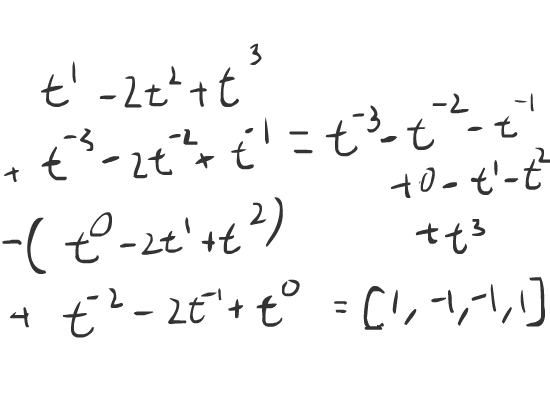 t¹ - 2t² + t³
+ t⁻³ - 2t⁻² + t⁻¹ = t⁻³ - t⁻² - t⁻¹
+ 0 - t¹ - t²
-( t⁰ - 2t¹ + t² )
+ t³
+ t⁻² - 2t⁻¹ + t⁰ = [1, -1, -1, 1]